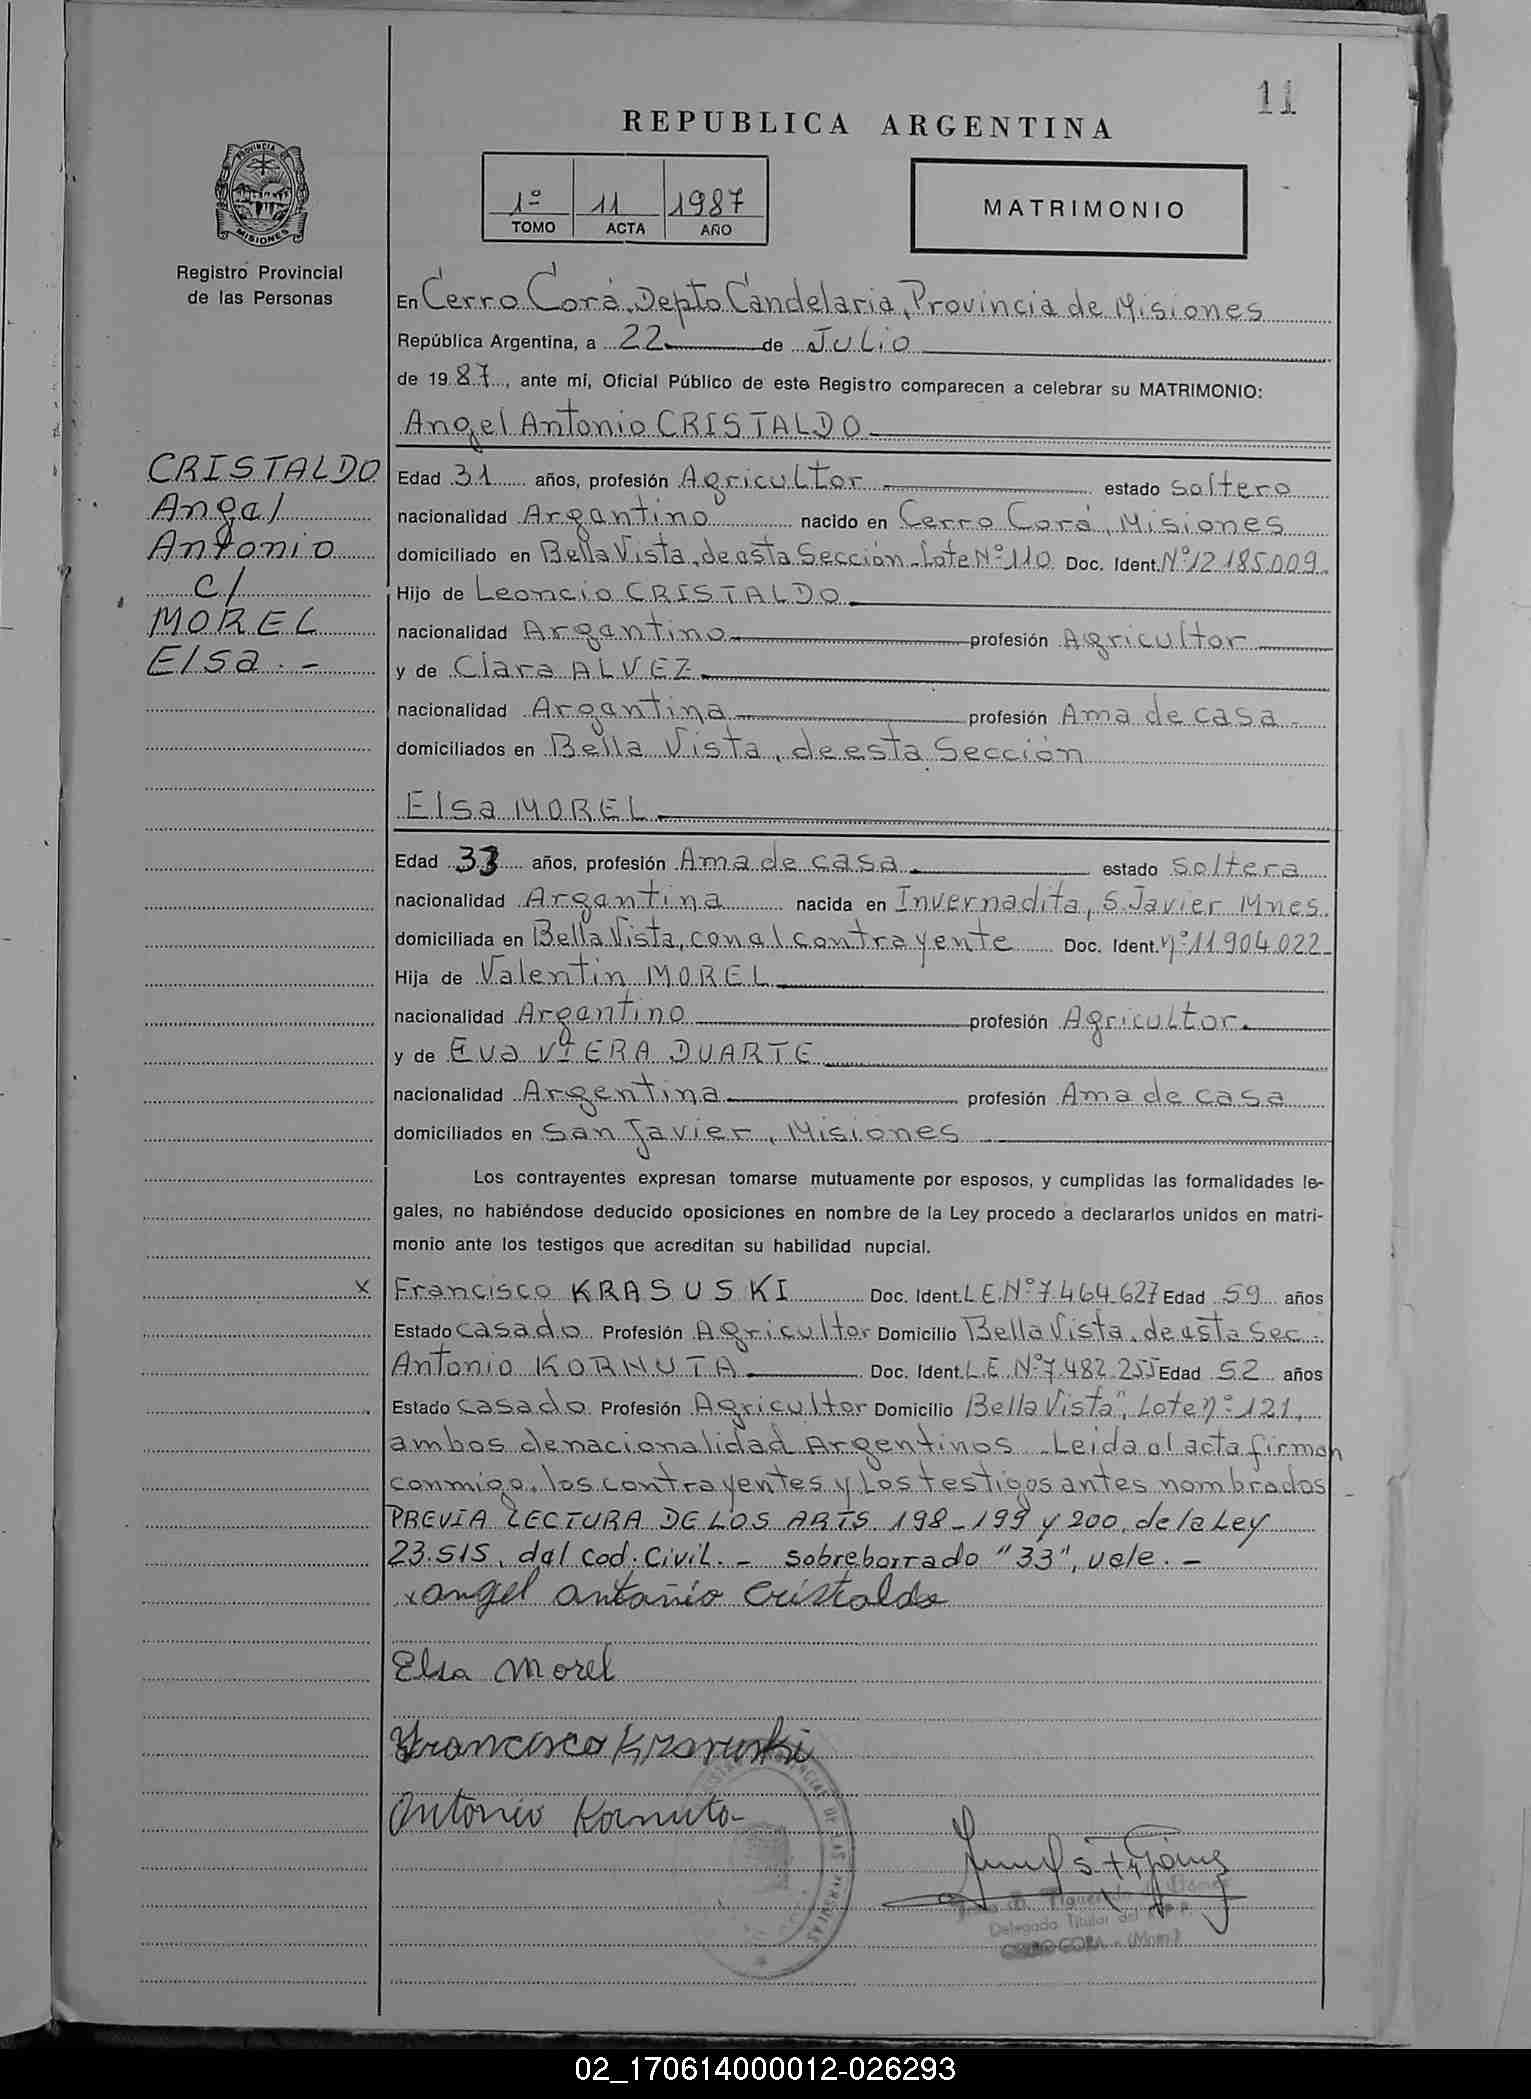 11
REPUBLICA ARGENTINA
PROVINCIA DE
MISIONES
Registro Provincial
de las Personas
1º 11 1987
TOMO ACTA AÑO
MATRIMONIO
En Cerro Corá, Depto Candelaria, Provincia de Misiones
República Argentina, a 22 de JULIO
de 1987, ante mí, Oficial Público de este Registro comparecen a celebrar su MATRIMONIO:
Angel Antonio CRISTALDO
CRISTALDO
Angel
Antonio
c/
MOREL
Elsa.-
Edad 31 años, profesión Agricultor estado soltero
nacionalidad Argentino nacido en Cerro Corá, Misiones
domiciliado en Bella Vista, de esta Sección-Lote Nº110 Doc. Ident. Nº12.185.009-
Hijo de Leoncio CRISTALDO
nacionalidad Argentino profesión Agricultor
y de Clara ALVEZ
nacionalidad Argentina profesión Ama de casa-
domiciliados en Bella Vista, de esta Sección
Elsa MOREL
Edad 33 años, profesión Ama de casa estado soltera
nacionalidad Argentina nacida en Invernadita, S. Javier Mnes.
domiciliada en Bella Vista, con el contrayente Doc. Ident. Nº11.904.022-
Hija de Valentin MOREL
nacionalidad Argentino profesión Agricultor.
y de Eva VIERA DUARTE
nacionalidad Argentina profesión Ama de casa
domiciliados en San Javier, Misiones
Los contrayentes expresan tomarse mutuamente por esposos, y cumplidas las formalidades le-
gales, no habiéndose deducido oposiciones en nombre de la Ley procedo a declararlos unidos en matri-
monio ante los testigos que acreditan su habilidad nupcial.
x Francisco KRASUSKI Doc. Ident. L.E.Nº7.464.627 Edad 59 años
Estado casado Profesión Agricultor Domicilio Bella Vista, de esta Sec.-
Antonio KORNUTA Doc. Ident. L.E.Nº7.482.255 Edad 52 años
Estado casado Profesión Agricultor Domicilio Bella Vista", Lote Nº121,
ambos de nacionalidad Argentinos -Leida el acta firman
conmigo, los contrayentes y los testigos antes nombrados
PREVIA LECTURA DE LOS ARTS. 198-199 y 200, de la Ley
23.515, del Cod. Civil.- sobreborrado "33", vale.-
x angel antonio Cristaldo
Elsa Morel
Francisco Krasuski
Antonio Kornuta
Delegada Titular del
CERRO CORA - (Mnes.)
02_170614000012-026293